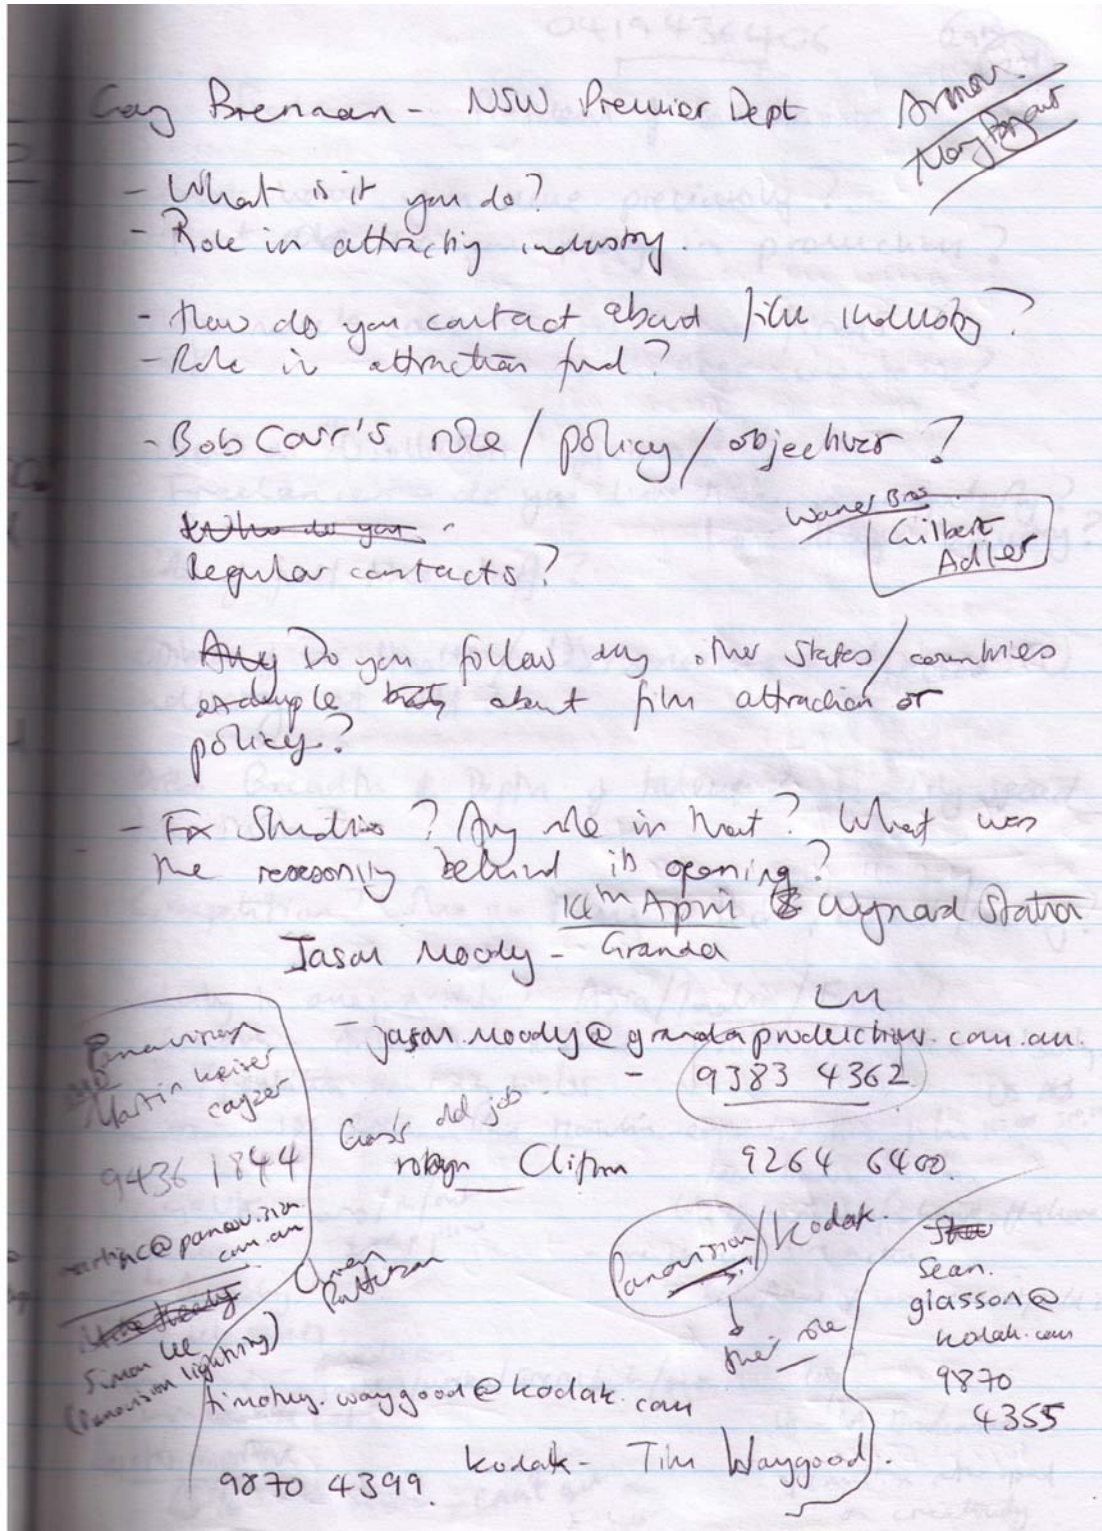 Brennan - NSW Premier Dept
- What is it you do?
- Role in attracting industry.
- How do you contact about film industry?
- Role in attraction fund?
- Bob Carr's role / policy / objectives ?
Warner Bros.
Gilbert
Adler
Who do you
Regular contacts?
Any Do you follow any other states / countries
example about film attraction or
policy?
- Fox Studios? Any role in that? What was
the reasoning behind its opening?
14th April @ Wynard Station
Jason Moody - Granda
- jason.moody@grandaproductions.com.au.
- 9383 4362
Panavision
Martin Keiser
cayzer
9436 1844
martinc@panavision
com.au
old job -
robyn Clifton 9264 6400
Owen
Patterson
Simon Lee
(Panavision lighting)
Panavision / Kodak.
their role
Sean.
glasson@
kodak.com
9870
4355
timothy.waygood@kodak.com
Kodak - Tim Waygood.
9870 4399.